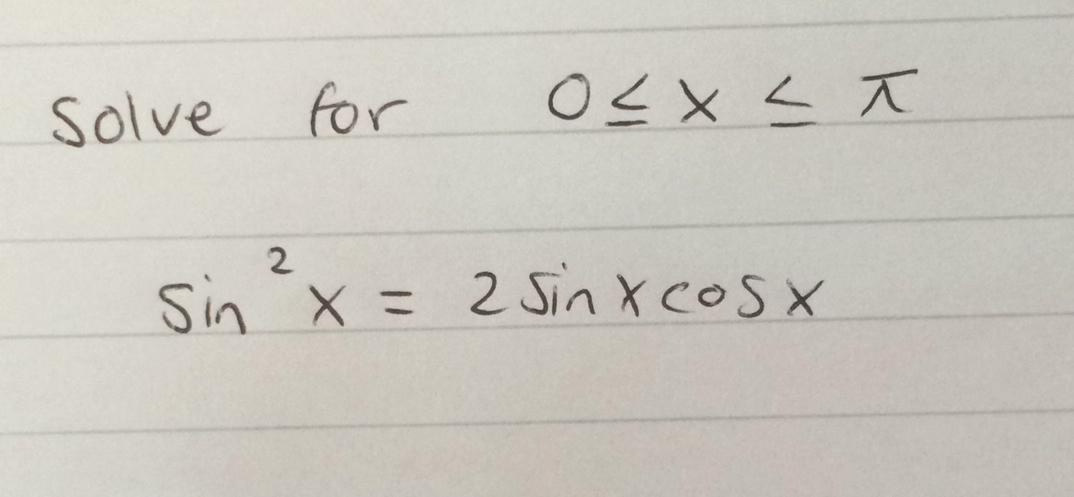 Solve for 0 ≤ x ≤ π
sin²x = 2 sin x cos x